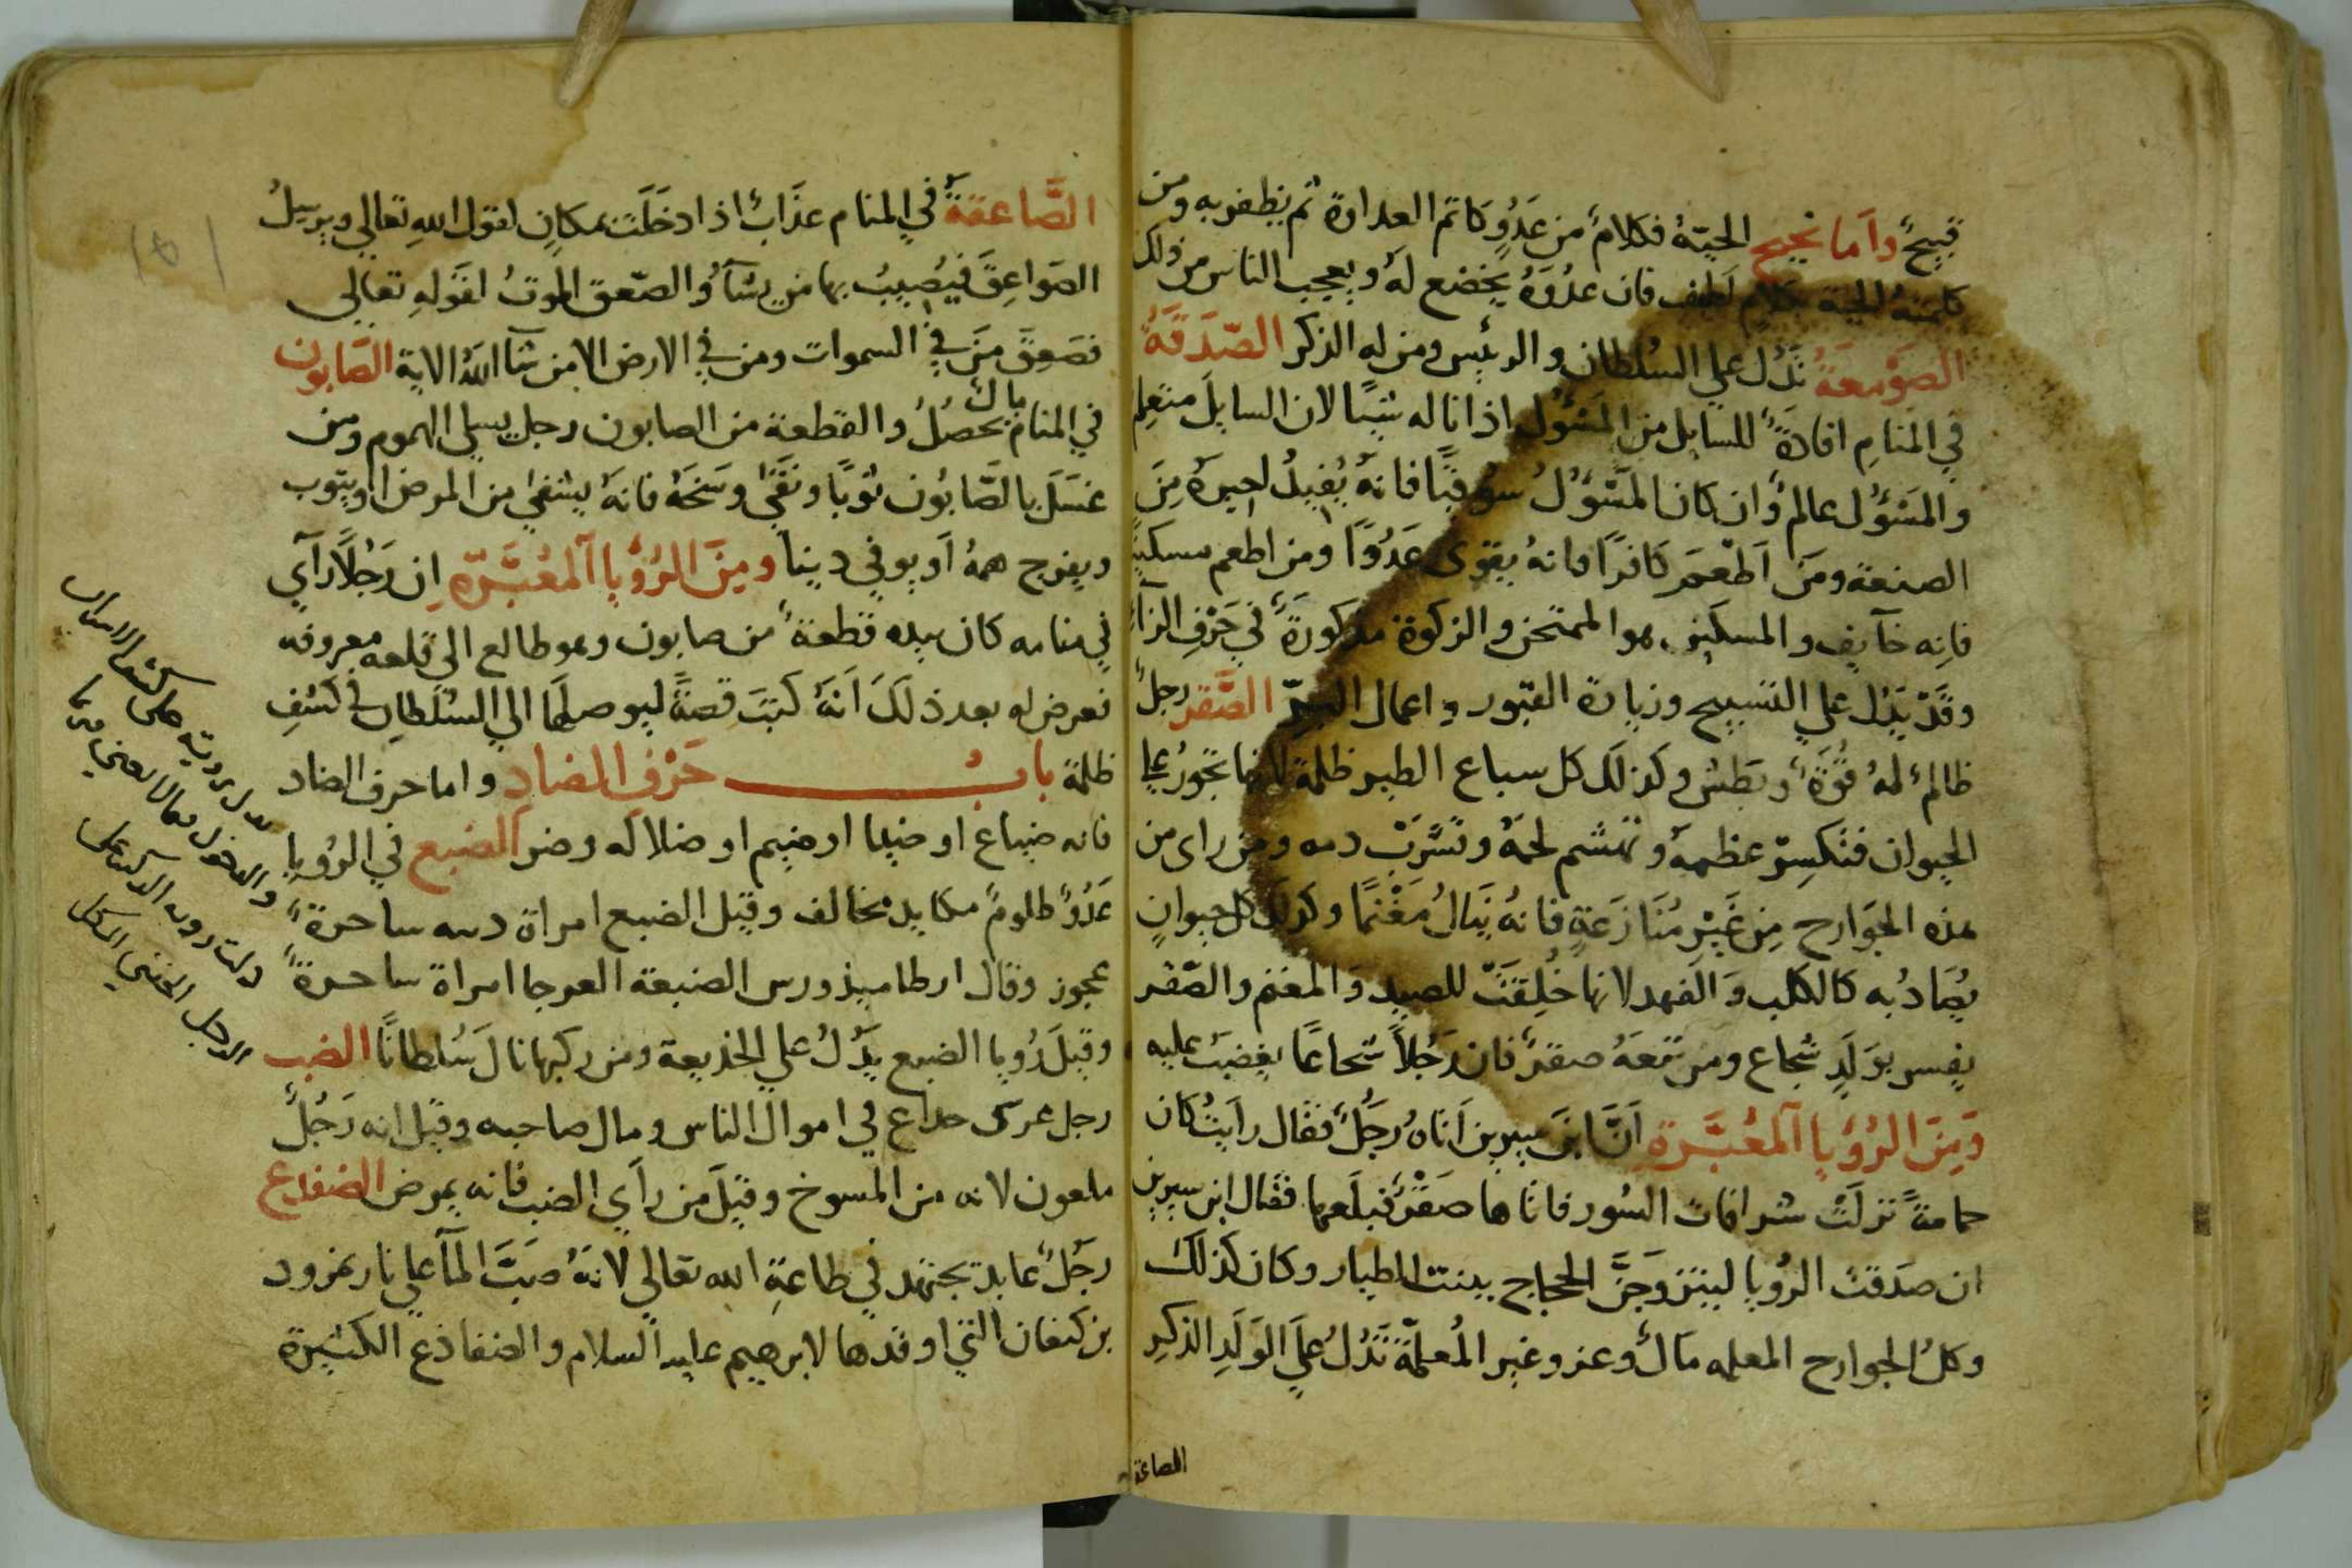 قبيحٌ وأما نجيح الحيّة فكلامٌ من عَدُوٍّ كاتم العداوة ثم يظفر به ومن
كلمته الحية بكلام لطيف فان عدُوَّهُ يخضع لهُ ويعجب الناس من ذلك
الصَوْمعَةُ تَدُل علي السُلطان والرئيس ومن له الذكر الصّدَقَةُ
في المنامِ افادَةٌ للسايل من المَسْؤُل اذا ناله شيًا لان السايلَ متعلم
والمسَؤُل عالمٌ وان كان المَسْؤُلُ سوُقيًّا فانهُ يُفيدُ اجيرهُ مِنَ
الصنعة ومَن اَطعَمَ كَافرًا فانهُ يقوي عَدُوًّا ومن اطعم مسكينًا
فانه خآيف والمسكين هو الممتحن والزكوة مذكورَةٌ في حَرْفِ الزآءِ
وقَدْ يَدُل علي التسبيح وزيارة القبور واعمال البِرّ الصَّقر رجلٌ
ظالمٌ لهُ قُوَّةٌ وبَطش وكذلك كل سباع الطير ظلمة لانها تجورُ علي
الحيوان فتكسِرُ عظمهُ وتهشم لحمهُ وتشَرَبْ دمه ومن راى من
هذه الجوَارح مِن غَيْرِ مُنَازعَةٍ فانهُ يَنالُ مَغْنمًا وكذلك كل حيوانٍ
يُصَادُ به كالكلب وَالفهد لانها خُلِقَتْ للصيد وَالمغنم والصّقر
يفسر بوَلَدٍ شجاع ومن تبعَهُ صقرٌ فان رَجُلاً شجاعًا يغضبُ عليه
وَمِنَ الرُؤيا المعُبَّرة اَنَّ ابن سيرين اَتاهُ رجُلٌ فقال رايتُ كان
حمامةً نزلَتْ شرافات السُور فاتاها صَقْرٌ فبلَعها فقال ابن سيرين
ان صدَقت الرُؤيا ليتزوجَنَّ الحجاج ببنت الطيار وكان كذلك
وكلُ الجوارح المعلمه مَالٌ وعز وغير المُعلمّة تَدُلُ عَلَي الوَلَدِ الذكرِ
الصاعقة
الصَّاعقةُ في المنام عذَابٌ اذا دخَلَت بمكانٍ لقول اللهِ تعالي ويرسِلُ
الصَواعِقَ فيُصِيبُ بها من يشآءُ والصّعق الموتُ لقَولهِ تعالي
فصَعِقَ مَن في السموات ومن في الارض الا من شآ اللهُ الاية الصَابون
في المنام مالٌ يحصُلُ والقطعة من الصابون رجل يسلي الهموم ومن
غسَلَ بالصّابُون ثوبًا ونَقّي وسَخَهُ فانهُ يشفي من المرض او يتوب
ويفرج همهُ اَو يوفي دينا ومِنَ الرُؤيا اَلمعُبَّرة اِن رَجُلًا رآي
في منامه كان بيده قطعةٌ من صابون وهو طالع الى قلعه معروفه
فعرض له بعد ذلَكَ اَنهُ كتبَ قصةً ليوصلها الي السُلطان في كشفِ
ظلمة بابُ حَرْف الضادِ واما حرف الضاد
فانه ضياع او ضيا او ضيم او ضلاله وضر الضبع في الرؤيا
عَدُوٌّ ظلومٌ مكايد مخالف وقيل الضبع امراة ساحرةٌ
عجوز وقال ارطاميذورس الضبعة العرجا امراة ساحرةٌ
وقيلَ رُؤيا الضبع يَدُلُ علي الخديعة ومن ركبها نالَ سُلطانًا الضب
رجل في اموال الناس ومال صاحبه وقيل انه رَجُلٌ
ملعون لانه من المسوخ وقيلَ من رأي الضب فانه يمرض الضفدع
رَجُلٌ عابد يجتهد في طاعةِ الله تعالي لانهُ صَبَّ المآ علي نار نمرود
بن كنعان التي اوقدها لابرهيم عليه السلام والضفادع الكثيرة